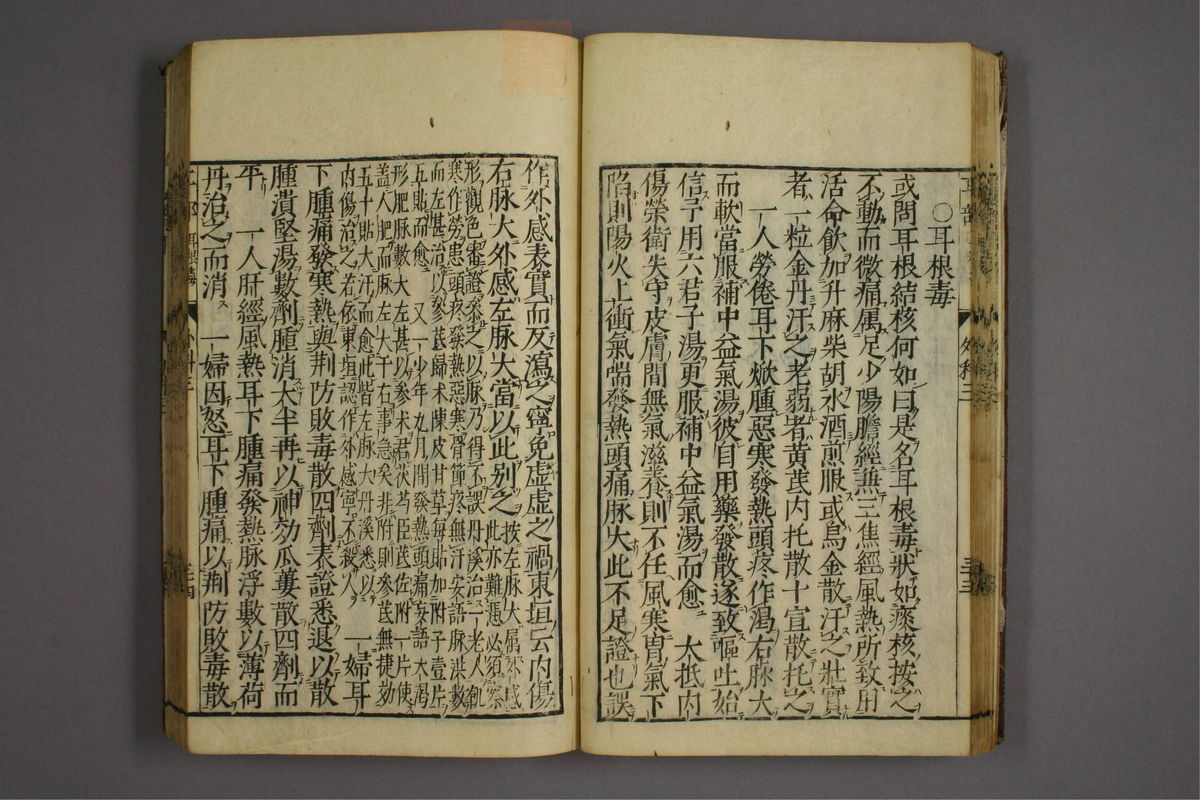 〇耳根毒
或問耳根結核何如曰是名耳根毒狀如痰核按之
不動而微痛属足少陽膽經兼三焦經風熱所致用
活命飲加升麻柴胡水酒煎服或烏金散汗之壯實
者一粒金丹汗之老弱者黃芪内托散十宣散托之
一人勞倦耳下焮腫惡寒發熱頭疼作渴右脉大
而軟當服補中益氣湯彼自用藥發散遂致嘔吐始
信予用六君子湯更服補中益氣湯而愈　大抵内
傷榮衛失守皮膚間無氣滋養則不任風寒胃氣下
陷則陽火上衝氣喘發熱頭痛脉大此不足證也誤
作外感表實而反瀉之寧免虛虛之禍東垣云内傷
右脉大外感左脉大當以此别之
按左脉大属外感
此亦難憑必須察
形觀色審證參之以脉乃得不誤丹溪治一老人飢
寒作勞患頭疼發熱惡寒骨節疼無汗妄語脉洪數
而左甚治以參芪歸术陳皮甘草每貼加附子壹片
五貼而愈　又一少年九月間發熱頭痛妄語大渴
形肥脉數大左甚以參术君茯芩臣芪佐附一片使
蓋人肥而脉左大于右事急矣非附則參芪無捷効
五十貼大汗而愈此皆左脉大丹溪悉以
内傷治之若依東垣認作外感寧不殺人
一婦耳
下腫痛發寒熱與荆防敗毒散四劑表證悉退以散
腫潰堅湯數劑腫消大半再以神効瓜蔞散四劑而
平　一人肝經風熱耳下腫痛發熱脉浮數以薄荷
丹治之而消　一婦因怒耳下腫痛以荆防敗毒散